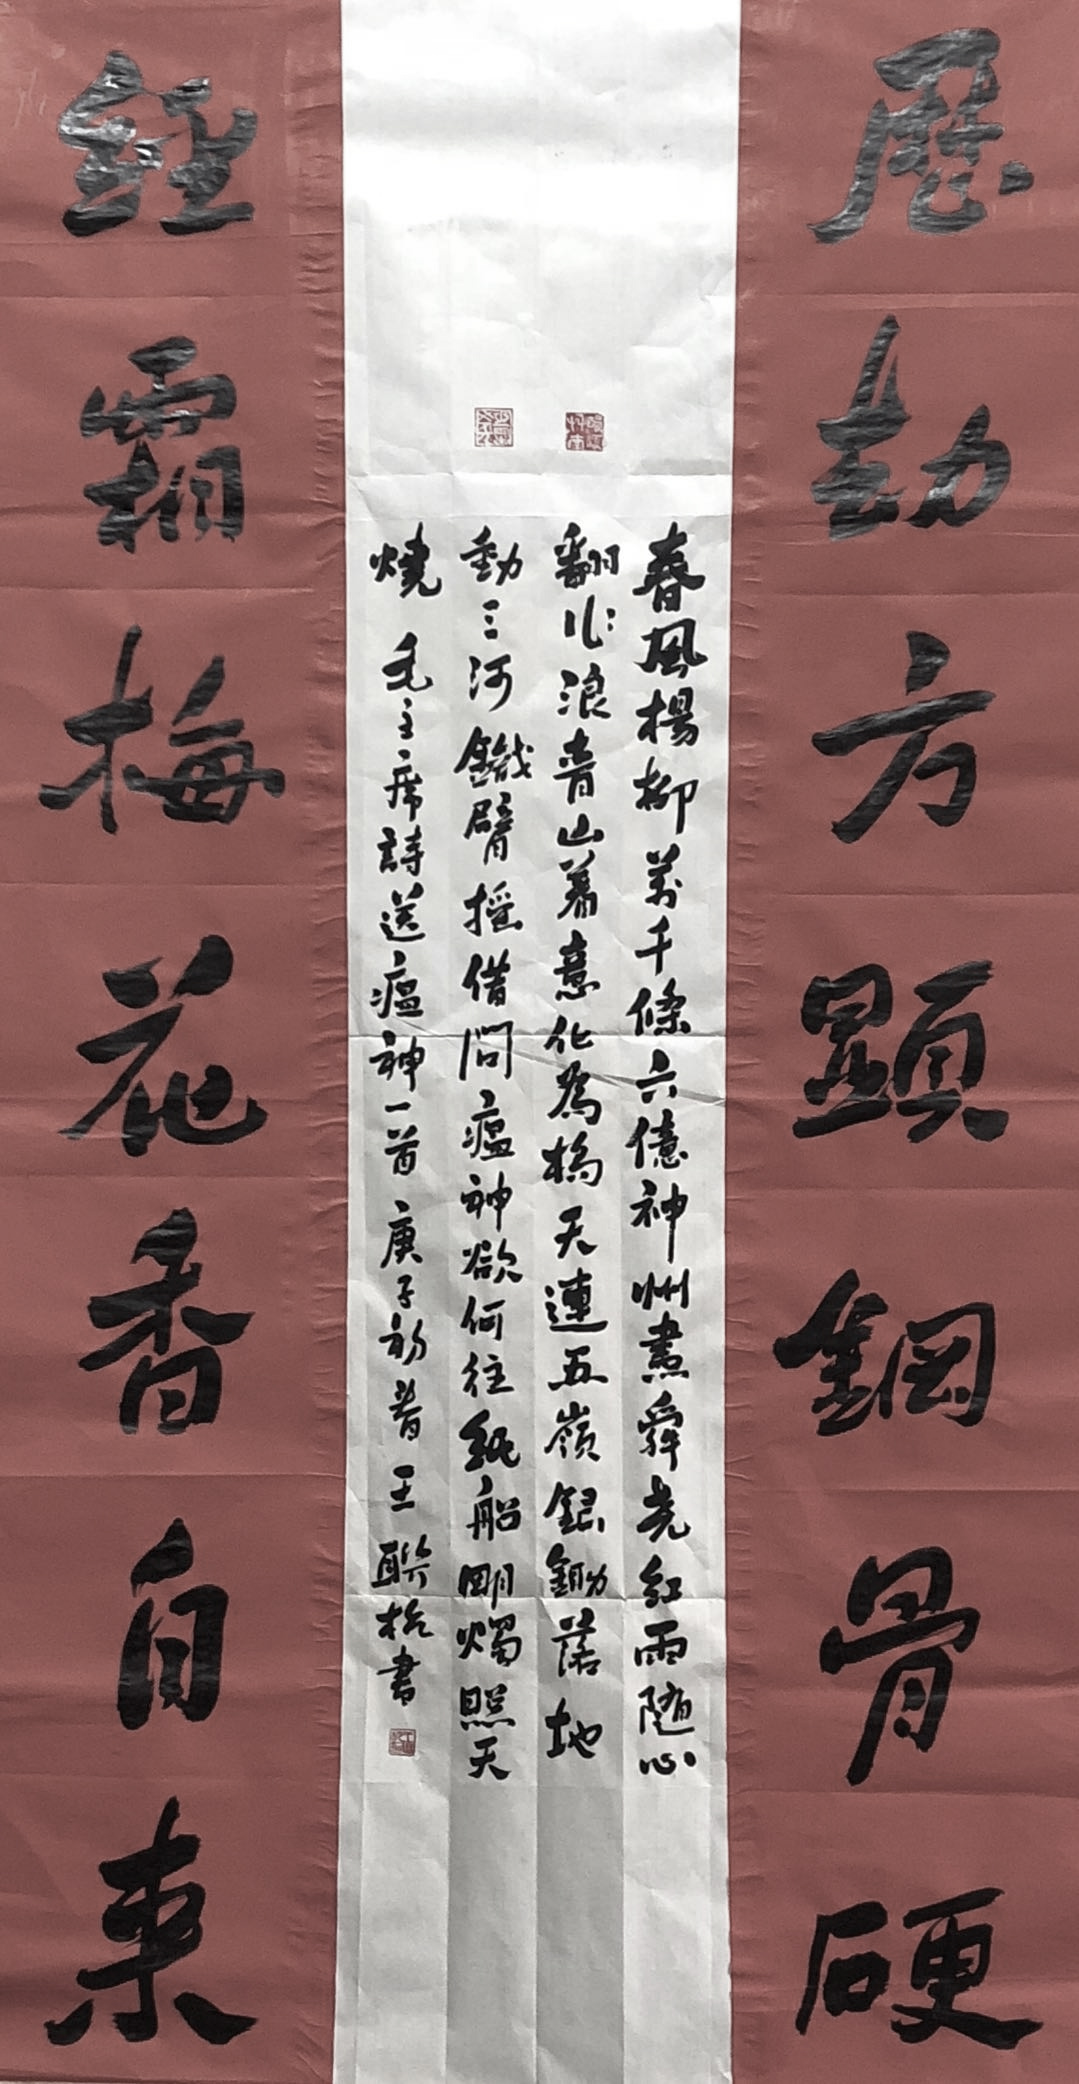 歷劫方顯鋼骨硬
春風楊柳萬千條六億神州盡舜堯紅雨隨心
翻作浪青山着意化為橋天連五嶺銀鋤落地
動三河鐵臂搖借問瘟神欲何往紙船明燭照天
燒 毛主席詩送瘟神一首庚子初春王聯松書
經霜梅花香自來